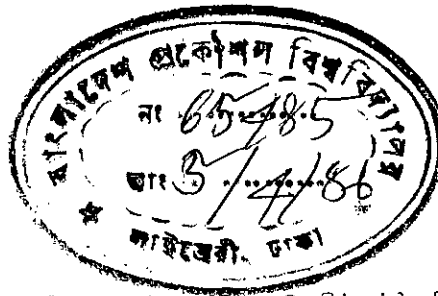 বাংলাদেশ প্রকৌশল বিশ্ববিদ্যালয়
নং 65485
তাং 3/4/86
লাইব্রেরী, ঢাকা